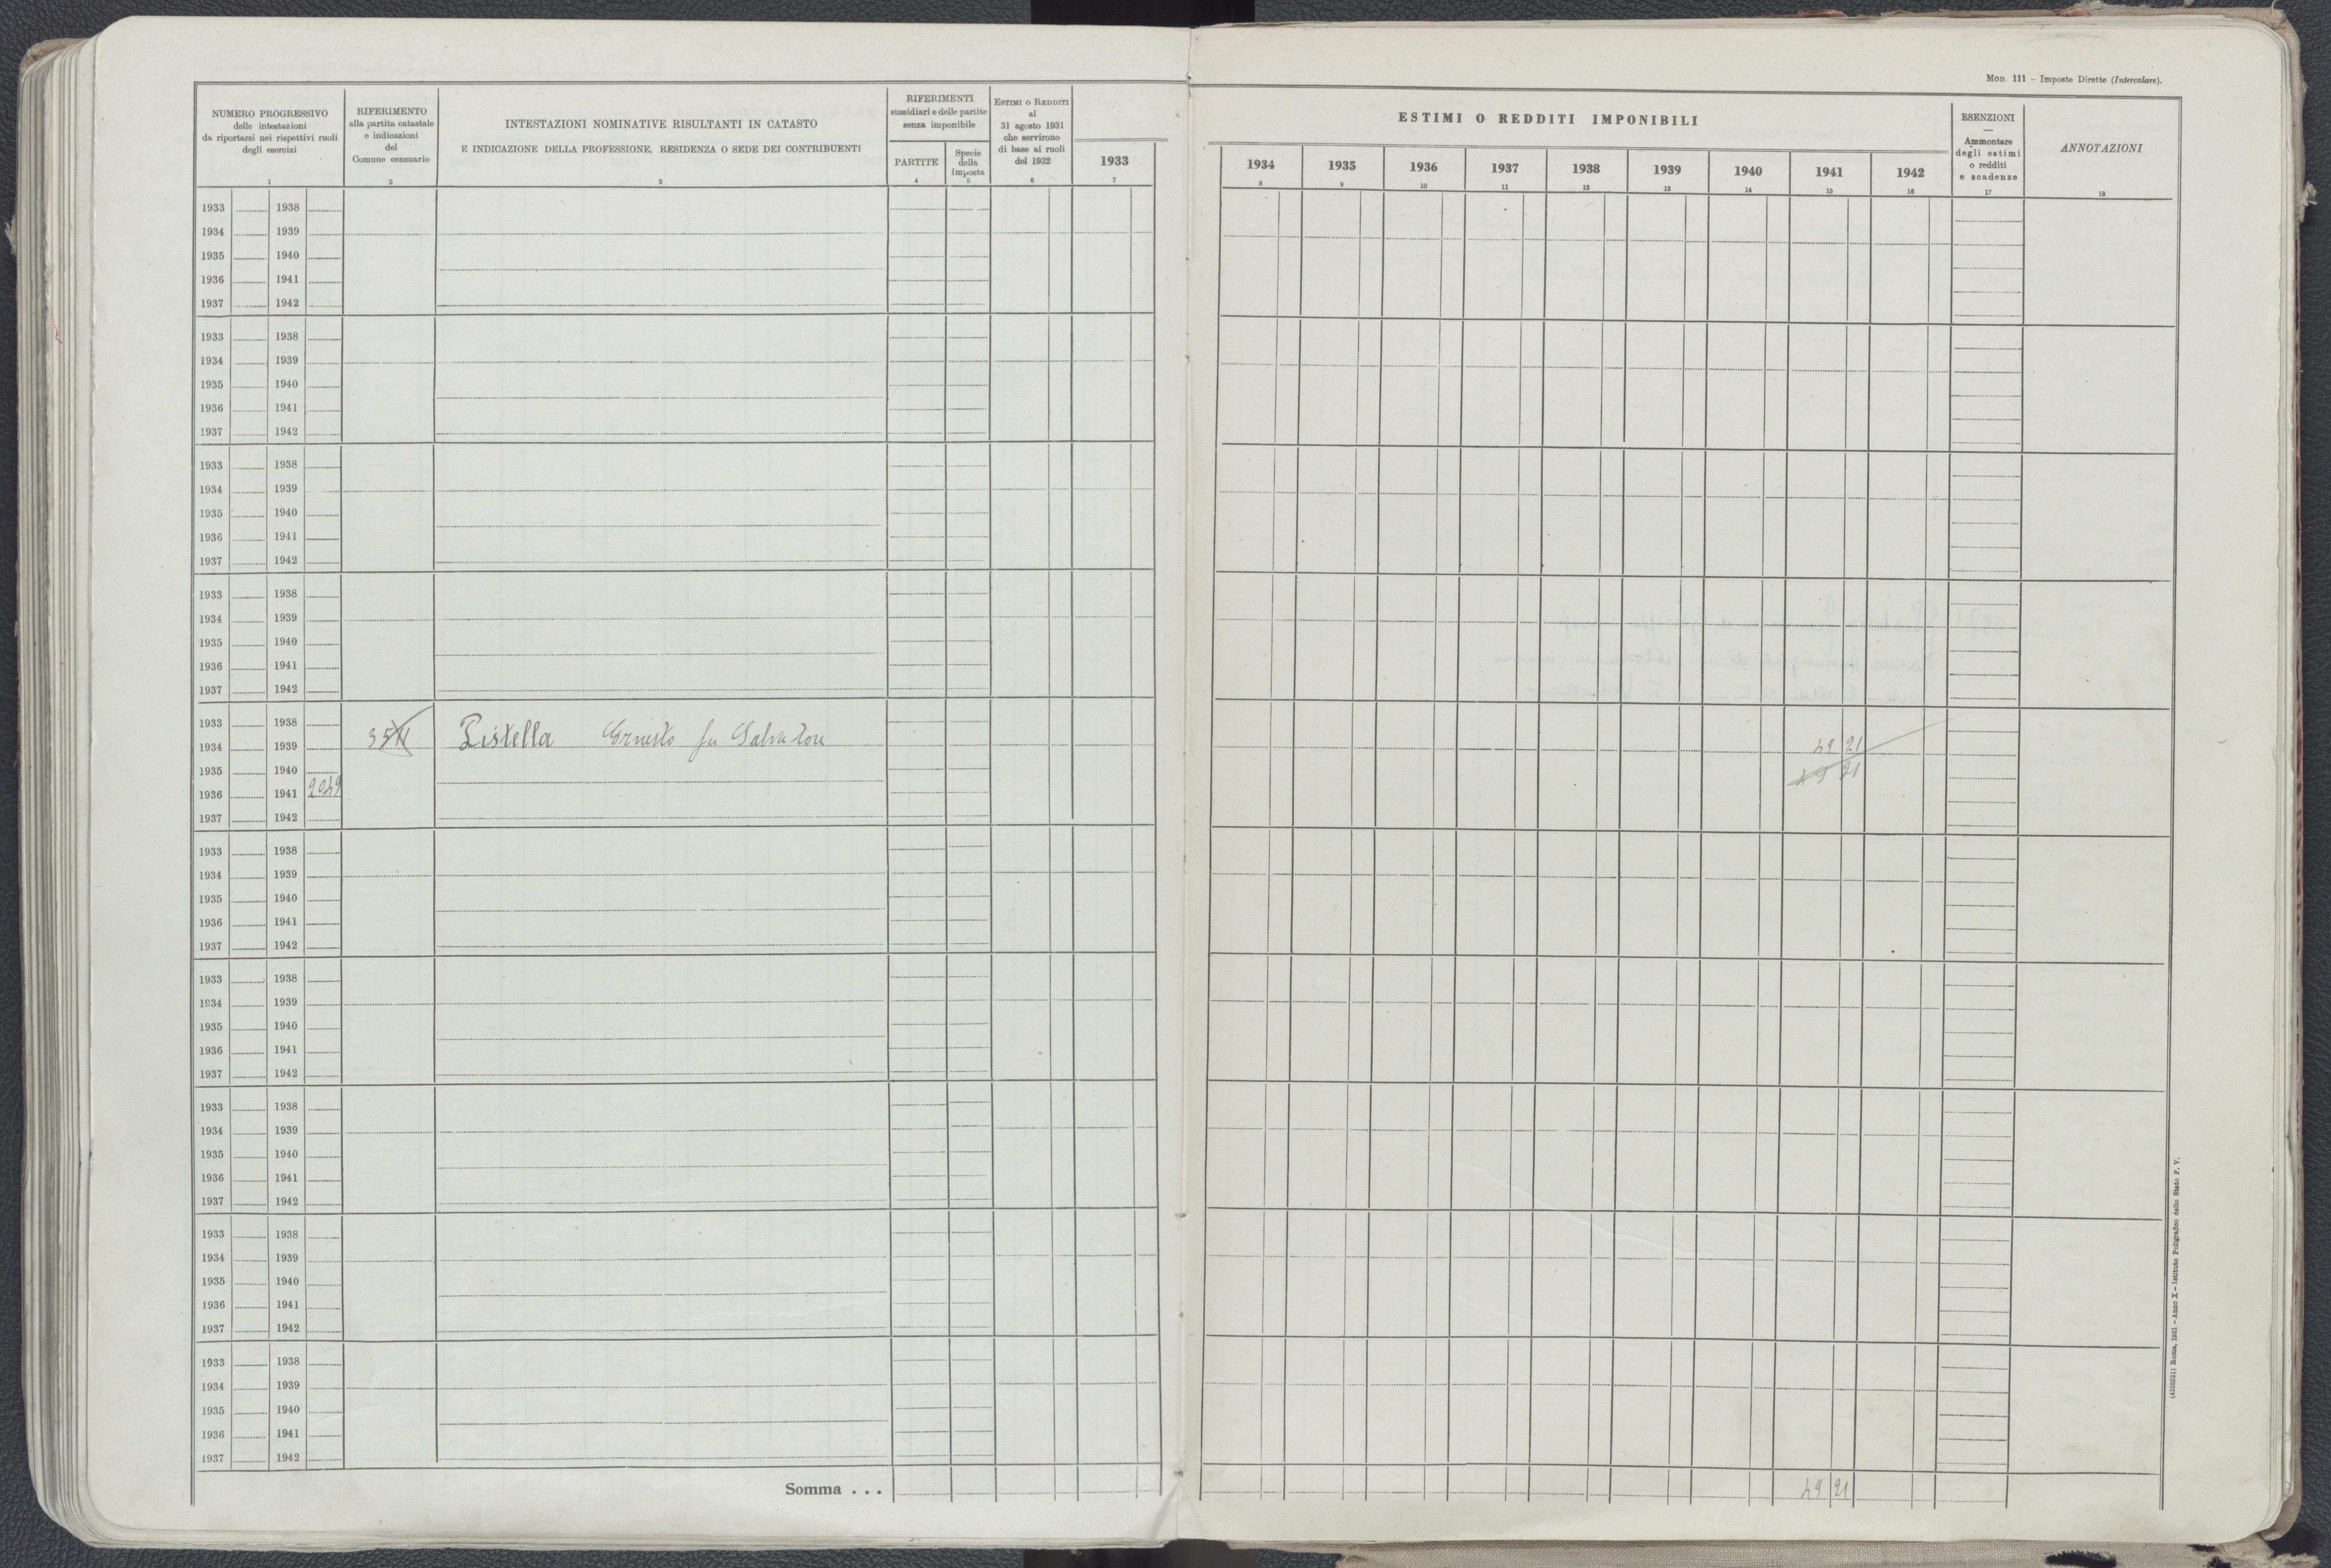 Mod. 111 - Imposte Dirette (Intercalare).
NUMERO PROGRESSIVO
delle intestazioni
da riportarsi nei rispettivi ruoli
degli esercizi
1
RIFERIMENTO
alla partita catastale
e indicazioni
del
Comune censuario
2
INTESTAZIONI NOMINATIVE RISULTANTI IN CATASTO
E INDICAZIONE DELLA PROFESSIONE, RESIDENZA O SEDE DEI CONTRIBUENTI
3
RIFERIMENTI
sussidiari e delle partite
senza imponibile
PARTITE
4
Specie
della
imposta
5
ESTIMI O REDDITI
al
31 agosto 1931
che servirono
di base ai ruoli
del 1932
6
1933
7
ESTIMI O REDDITI IMPONIBILI
1934 1935 1936 1937 1938 1939 1940 1941 1942
8 9 10 11 12 13 14 15 16
ESENZIONI
—
Ammontare
degli estimi
o redditi
e scadenze
17
ANNOTAZIONI
18
1933 1938
1934 1939
1935 1940
1936 1941
1937 1942
1933 1938
1934 1939
1935 1940
1936 1941
1937 1942
1933 1938
1934 1939
1935 1940
1936 1941
1937 1942
1933 1938
1934 1939
1935 1940
1936 1941
1937 1942
1933 1938
1934 1939 Pistella Ernesto fu Salvatore 49 21
1935 1940 49 21
1936 1941 2049
1937 1942
1933 1938
1934 1939
1935 1940
1936 1941
1937 1942
1933 1938
1934 1939
1935 1940
1936 1941
1937 1942
1933 1938
1934 1939
1935 1940
1936 1941
1937 1942
1933 1938
1934 1939
1935 1940
1936 1941
1937 1942
1933 1938
1934 1939
1935 1940
1936 1941
1937 1942
Somma . . . 49 21
Roma, 1931 - Anno X - Istituto Poligrafico dello Stato P. V.